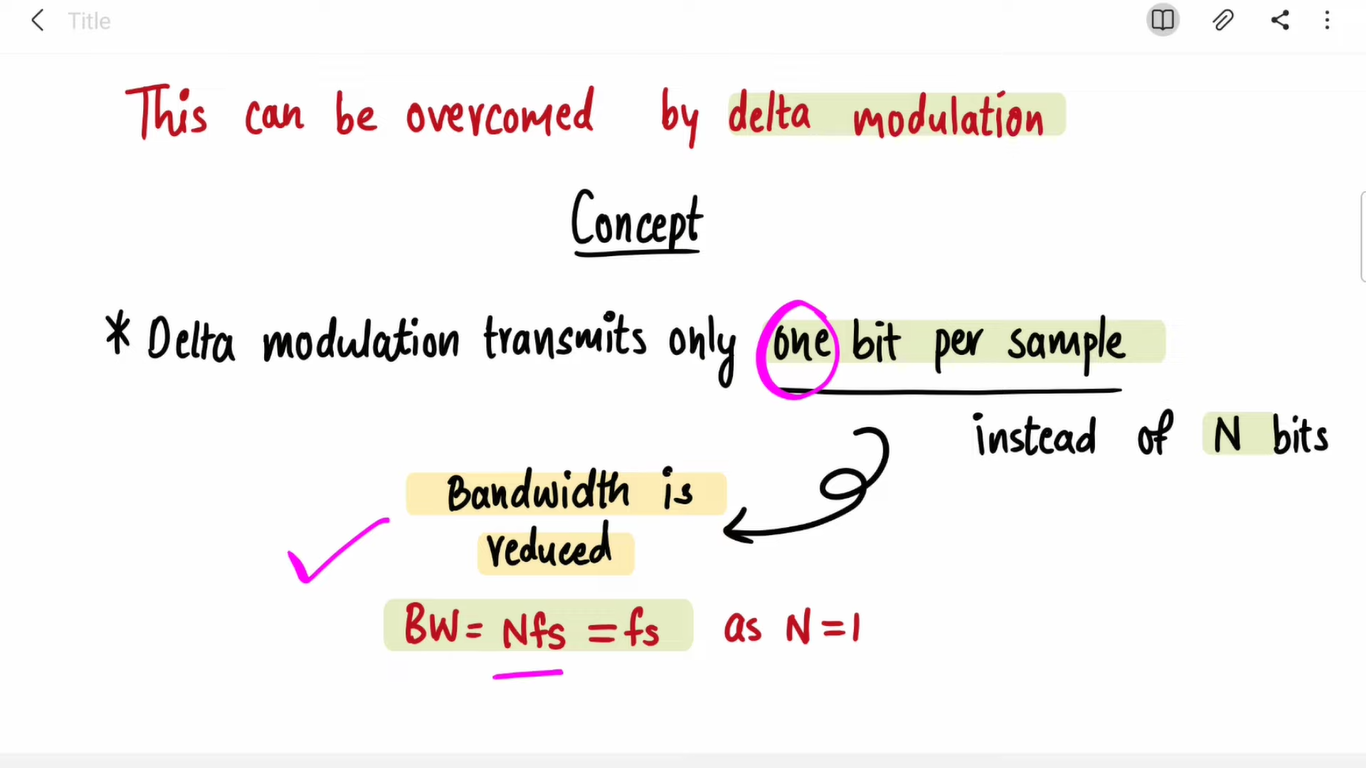 Title
This can be overcomed by delta modulation
Concept
* Delta modulation transmits only one bit per sample
instead of N bits
Bandwidth is
reduced
BW = Nfs = fs as N = 1